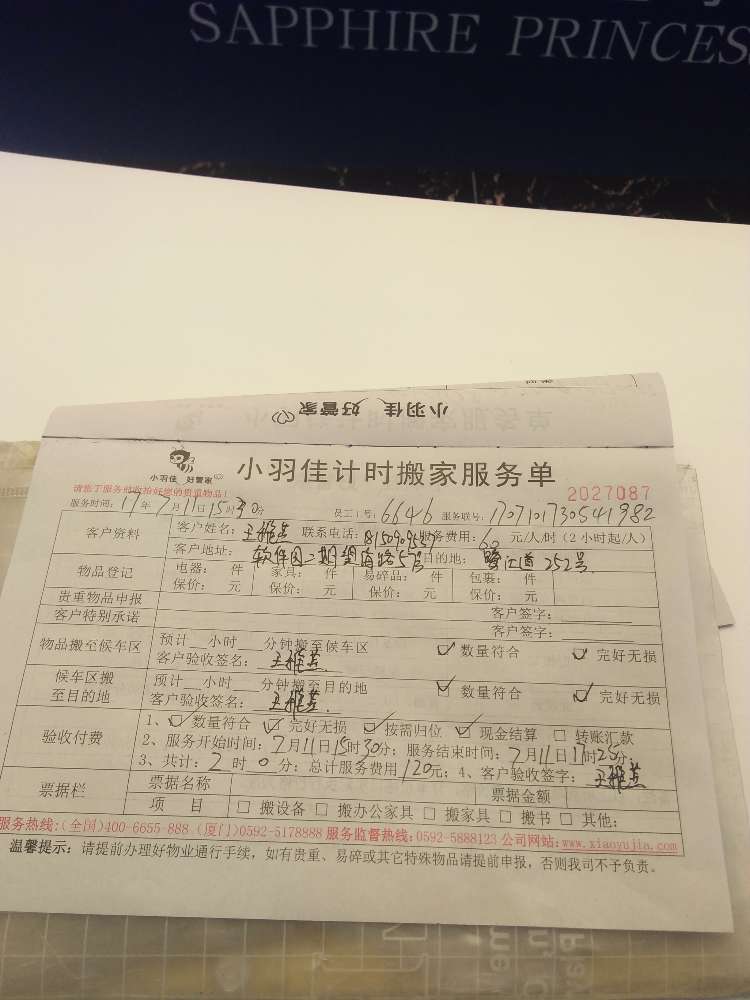 SAPPHIRE PRINCES
小羽佳 好管家
小羽佳 好管家
小羽佳计时搬家服务单
2027087
请您于服务时收拾好您的贵重物品!
服务时间: 17年7月11日15时30分 员工工号: 6646 服务联号: 1707101730541982
客户资料 客户姓名: 联系电话: 服务费用: 60 元/人/时 (2小时起/人)
客户地址: 软件园二期望海路5号 目的地: 鹭江道252号
物品登记 电器: 件 家具: 件 易碎品: 件 包裹: 件
保价: 元 保价: 元 保价: 元 保价: 元
贵重物品申报 客户签字:
客户特别承诺 客户签字:
物品搬至候车区 预计 小时 分钟搬至候车区 ☑ 数量符合 ☑ 完好无损
客户验收签名:
候车区搬至目的地 预计 小时 分钟搬至目的地 ☑ 数量符合 ☑ 完好无损
客户验收签名:
验收付费 1、☑ 数量符合 ☑ 完好无损 ☑ 按需归位 ☑ 现金结算 □ 转账汇款
2、服务开始时间: 7月11日15时30分; 服务结束时间: 7月11日17时25分;
3、共计: 2 时 0 分; 总计服务费用 120元; 4、客户验收签字:
票据栏 票据名称 票据金额
项 目 □ 搬设备 □ 搬办公家具 □ 搬家具 □ 搬书 □ 其他:
服务热线:(全国)400-6655-888 (厦门)0592-5178888 服务监督热线:0592-5888123 公司网站:www.xiaoyujia.com
温馨提示: 请提前办理好物业通行手续, 如有贵重、易碎或其它特殊物品请提前申报, 否则我司不予负责。